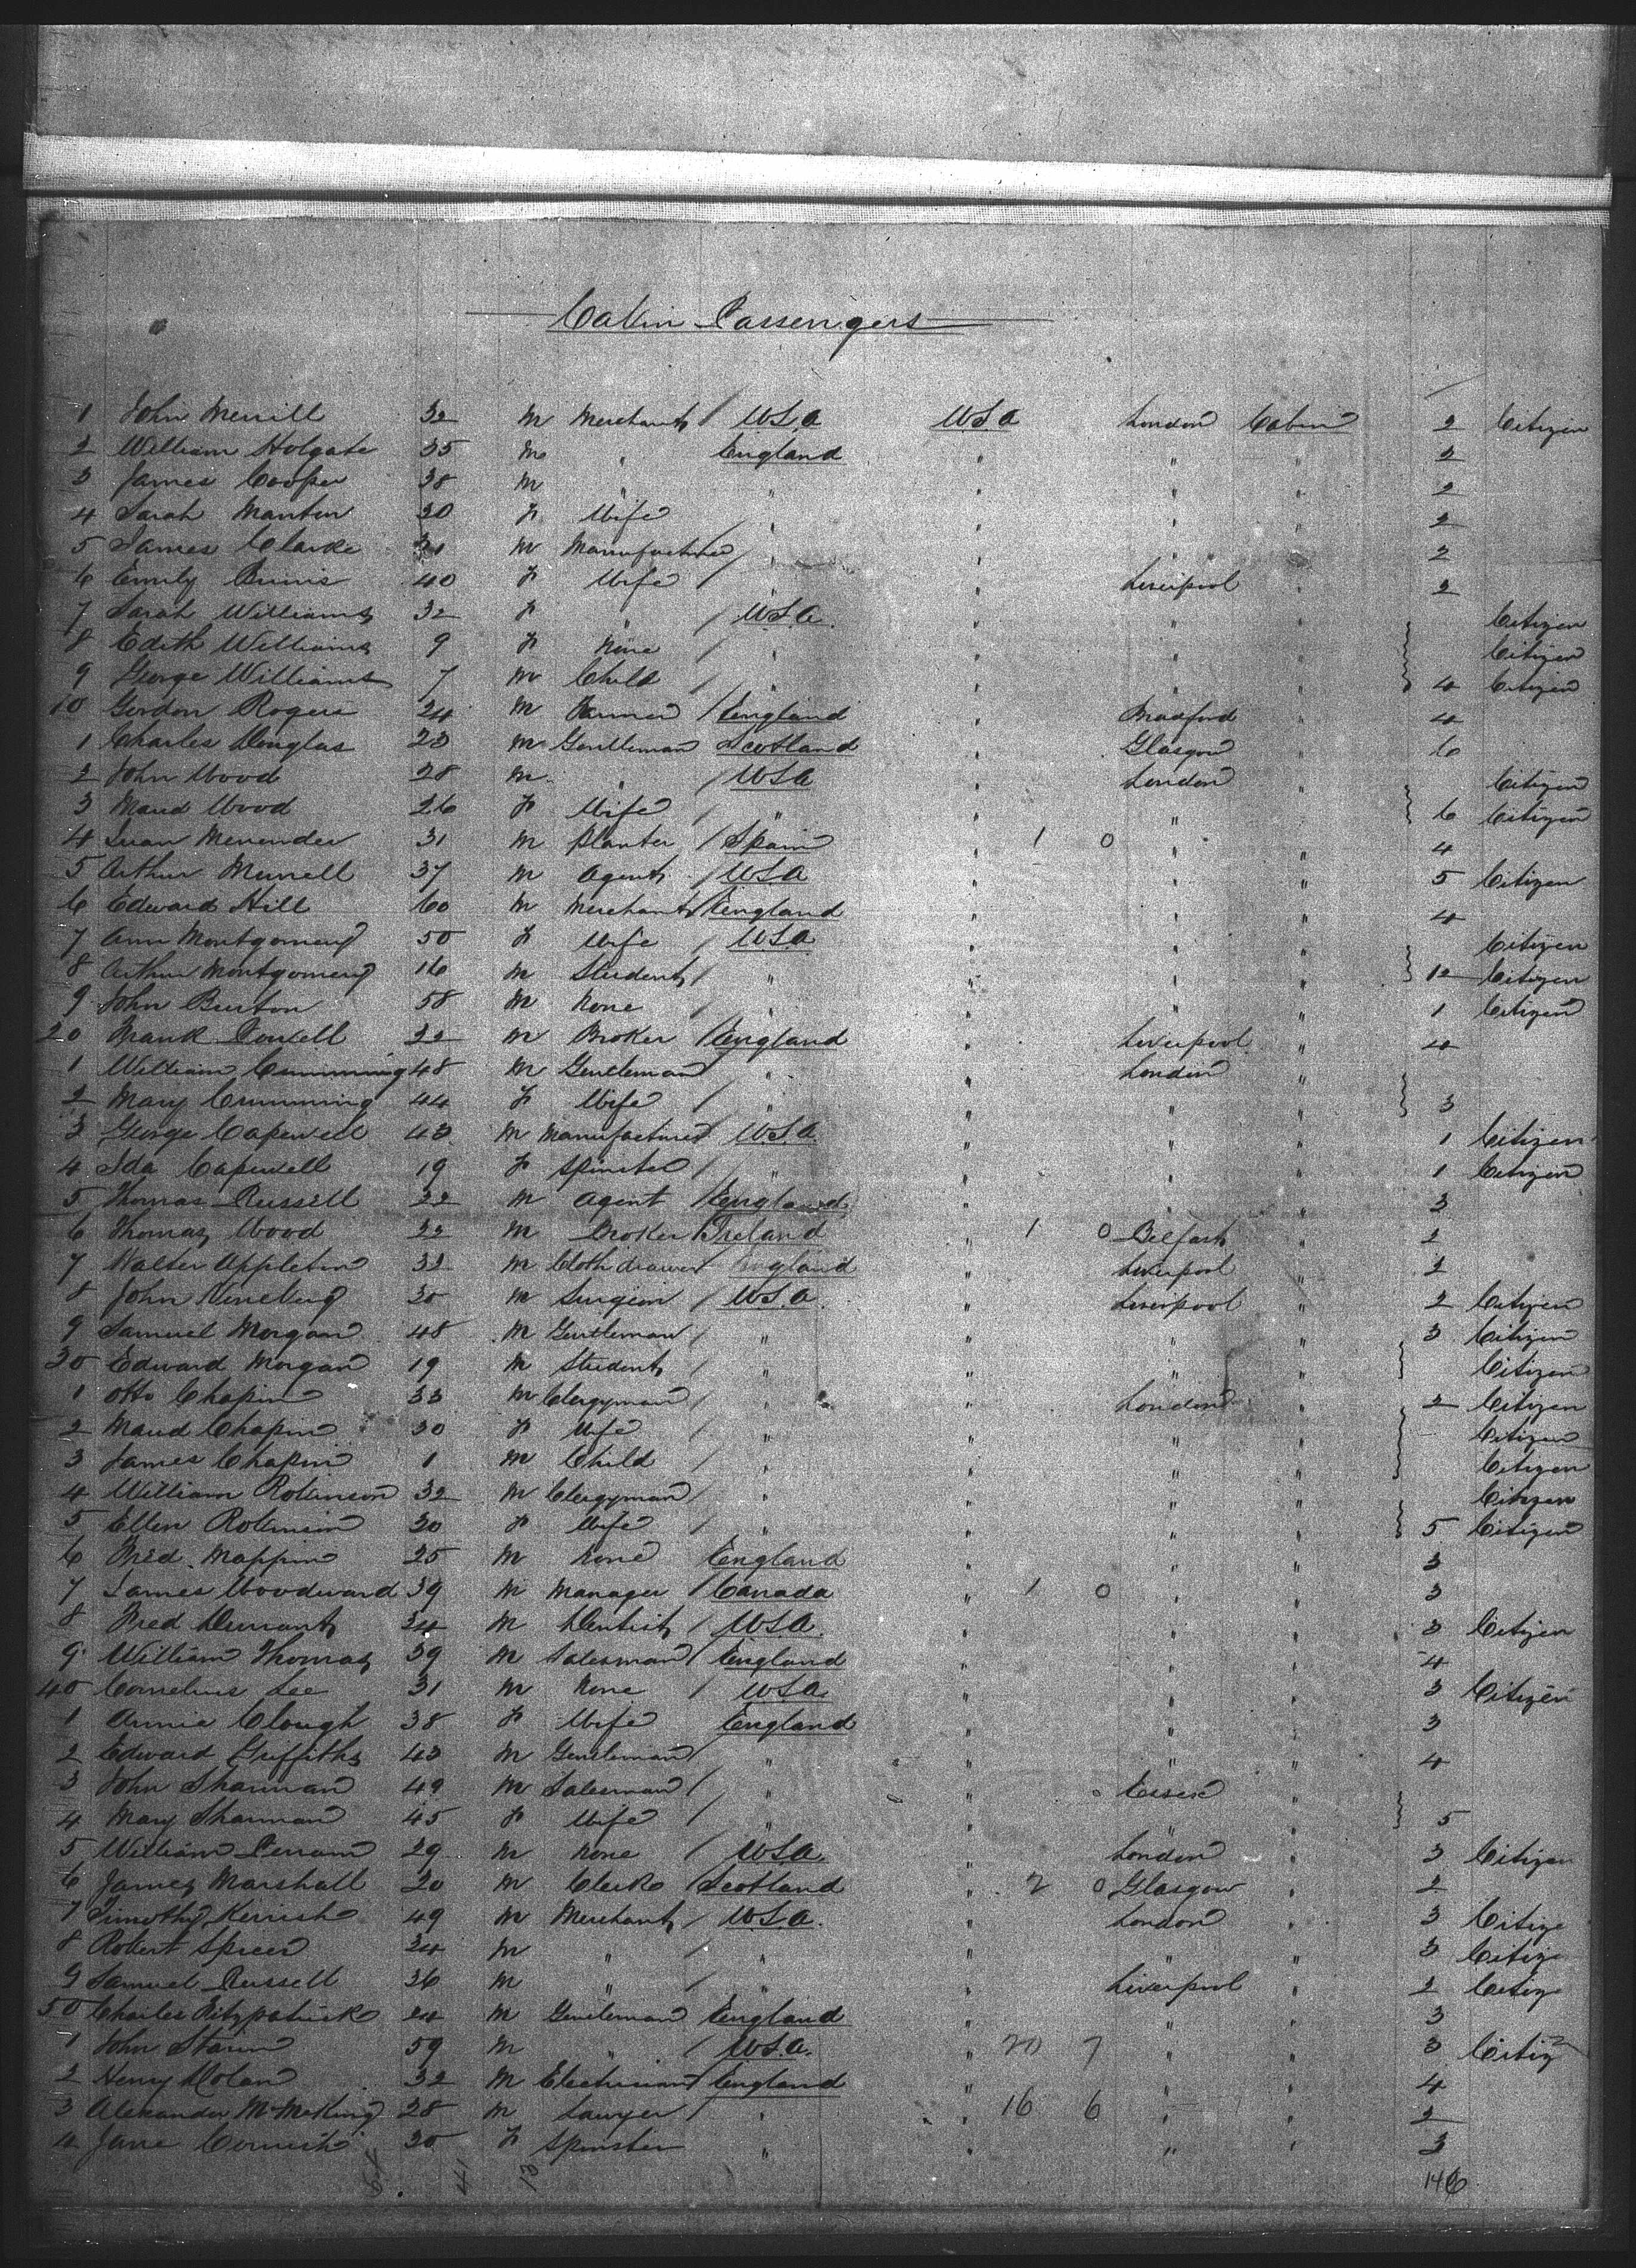 Cabin Passengers
1 John Merrill 32 M Merchant / U.S.A U.S.A London Cabin 2 Citizen
2 William Holgate 35 M " England " " " 2
3 James Cooper 38 M " " " " " 2
4 Sarah Manton 30 F Wife / " " " " 2
5 James Clarke M Manufacturer / " " " " 2
6 Emily 40 F Wife / " " Liverpool " 2
7 Sarah Williams 32 F " / U.S.A. " " " Citizen
8 Edith Williams 9 F None / " " " " Citizen
9 George Williams 7 M Child / " " " " 4 Citizen
10 Gordon Rogers 24 M Farmer / England " Bradford " 4
1 Charles Douglas 23 M Gentleman Scotland " Glasgow " 6
2 John Wood 28 M " / U.S.A " London " Citizen
3 Maud Wood 26 F Wife / " " " " 6 Citizen
4 Juan Menendez 31 M Planter / Spain " 1 0 " " 4
5 Arthur Murrell 37 M Agent / U.S.A " " " 5 Citizen
6 Edward Hill 60 M Merchant / England " " " 4
7 Ann Montgomery 50 F Wife / U.S.A " " " Citizen
8 Arthur Montgomery 16 M Student / " " " " 12 Citizen
9 John Burton 58 M None / " " " " 1 Citizen
20 Frank Powell 22 M Broker / England " Liverpool " 4
1 William Cumming 48 M Gentleman " " London "
2 Mary Cumming 44 F Wife / " " " " 3
3 George Capewell 43 M Manufacturer U.S.A. " " " 1 Citizen
4 Ida Capewell 19 F Spinster / " " " " 1 Citizen
5 Thomas Russell 22 M Agent / England " " " 3
6 Thomas Wood 22 M Broker Ireland " 1 0 Belfast " 2
7 Walter Appleton 32 M Cloth drawer England " Liverpool " 2
8 John 30 M Surgeon / U.S.A. " Liverpool " 2 Citizen
9 Samuel Morgan 48 M Gentleman / " " " " 3 Citizen
30 Edward Morgan 19 M Student / " " " " Citizen
1 Otto Chapin 33 M Clergyman / " " London " 2 Citizen
2 Maud Chapin 30 F Wife / " " " " Citizen
3 James Chapin 1 M Child / " " " " Citizen
4 William Robinson 32 M Clergyman / " " " " Citizen
5 Ellen Robinson 30 F Wife / " " " " 5 Citizen
6 Fred Mappin 25 M None England " " " 3
7 James Woodward 39 M Manager / Canada " 1 0 " " 3
8 Fred Durrant 34 M Dentist / U.S.A. " " " 3 Citizen
9 William Thomas 39 M Salesman / England " " " 4
40 Cornelius Lee 31 M None / U.S.A. " " " 3 Citizen
1 Annie Clough 38 F Wife England " " " 3
2 Edward Griffiths 43 M Gentleman / " " " " 4
3 John Sharman 49 M Salesman / " " Essex "
4 Mary Sharman 45 F Wife / " " " " 5
5 William 29 M None / U.S.A. " London " 3 Citizen
6 James Marshall 20 M Clerk / Scotland " 2 0 Glasgow " 2
7 Timothy Kerrish 49 M Merchant / U.S.A. " London " 3 Citize
8 Robert Spicer 34 M " / " " " " 3 Citize
9 Samuel Russell 36 M " / " " Liverpool " 2 Citiz
50 Charles Fitzpatrick 24 M Gentleman England " " " 3
1 John 59 M " / U.S.A. " 20 7 " " 3 Citiz
2 Henry Dolan 32 M Electrician / England " " " 4
3 Alexander 28 M Lawyer / " " 16 6 " " 2
4 Jane Cornish 30 F Spinster " " " " 3
41 13 146